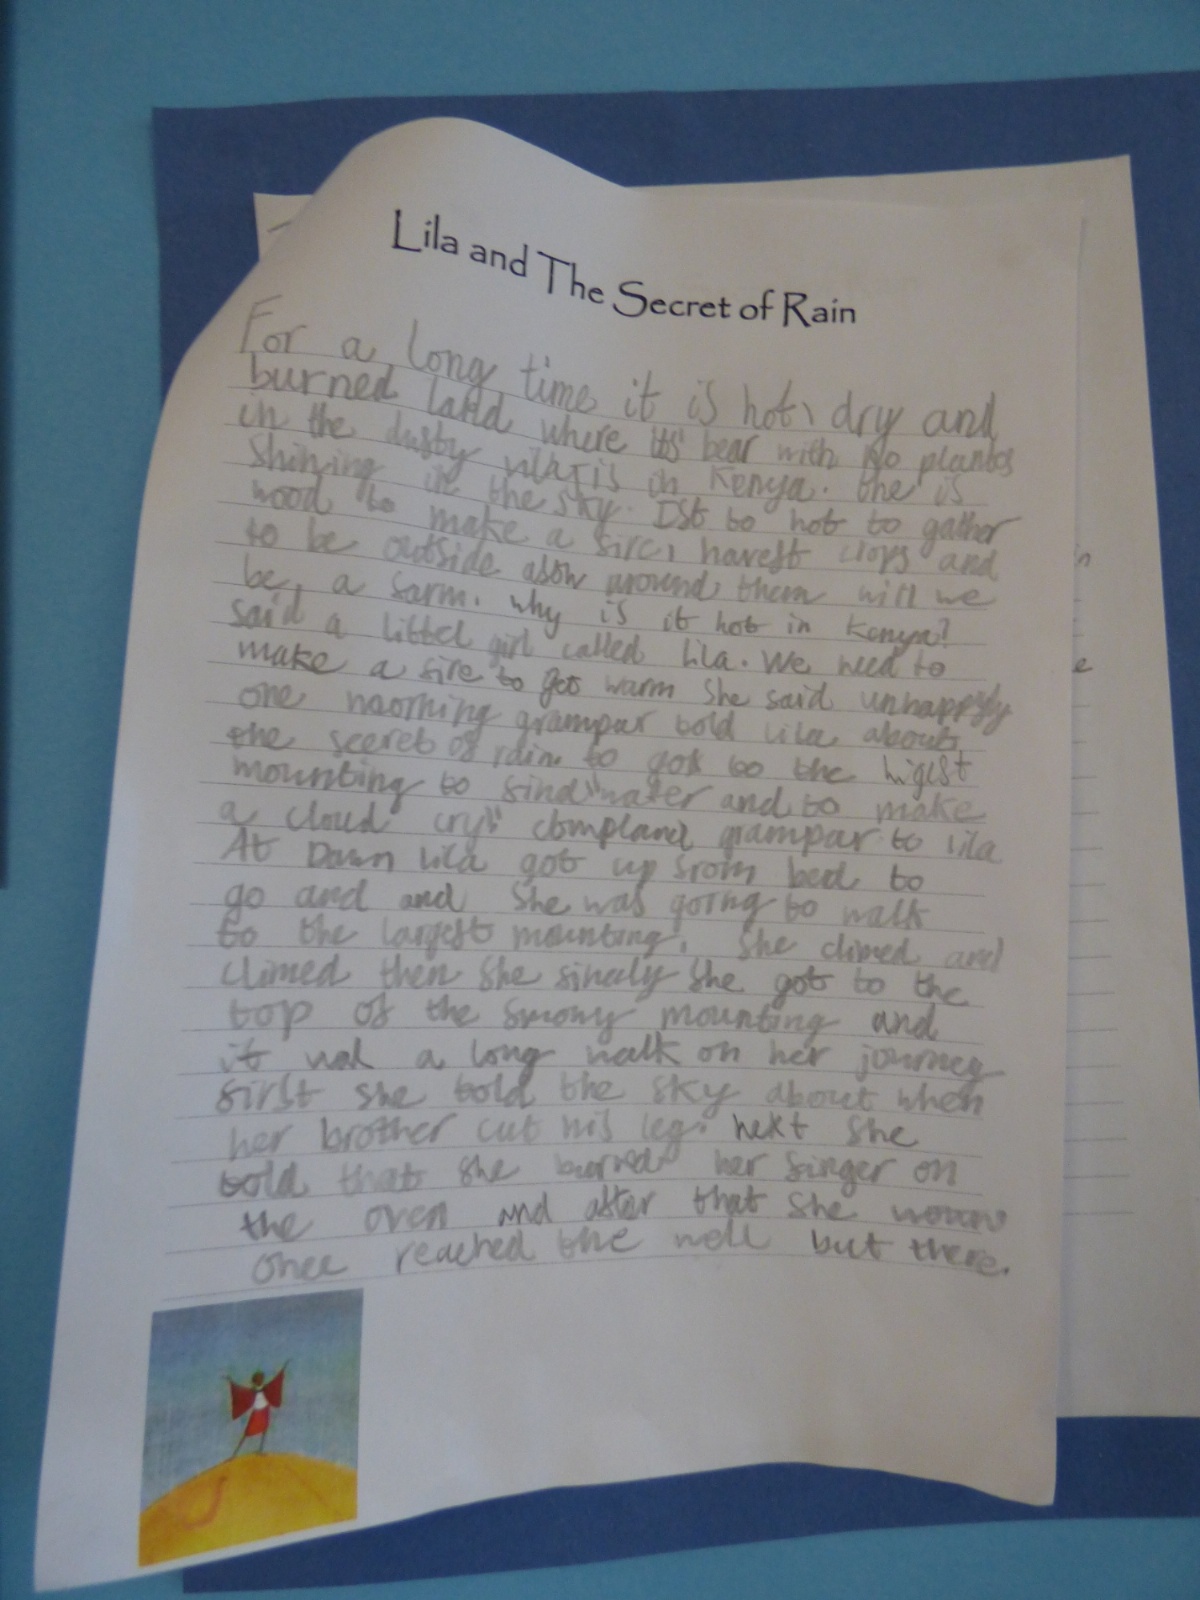 Lila and The Secret of Rain
For a long time it is hot, dry and
burned land where its bear with No plants
in the dusty in Kenya. the is
Shining in the sky. Ist to hot to gather
wood to make a fire, havest crops and
to be outside around them will we
be, a farm. Why is it hot in Kenya?
said a littel girl called Lila. We need to
make a fire to get warm She said unhappyly
one maorning grampar told Lila about
the secret of rain. to got to the higist
mounting to find "water and to make
a cloud cry" compland grampar to Lila
At Dawn Lila got up from bed to
go and and She was going to walk
to the largest mounting. She climed and
climed then She finaly She got to the
top of the mounting and
it a long walk on her journey
first she told the sky about when
her brother cut his leg. Next She
told that she burned her finger on
the oven and after that She
once reached the well but there.
n
e